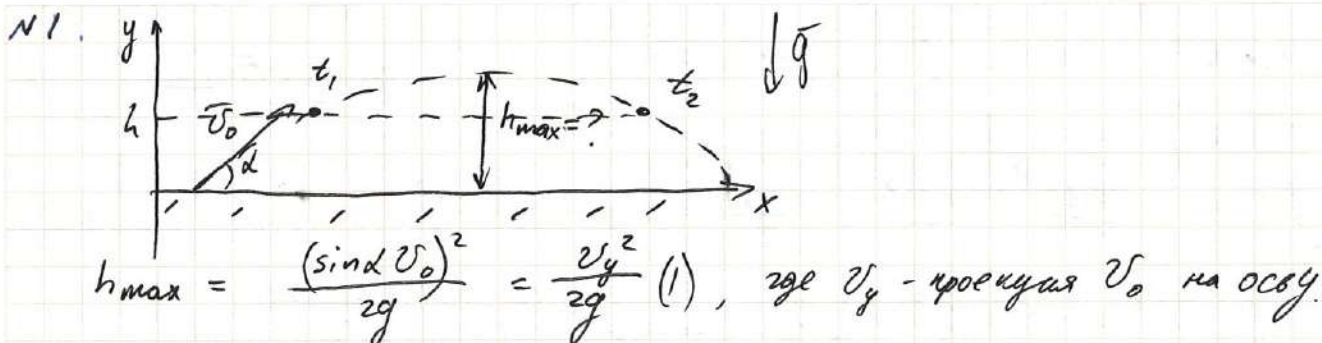 N1. y
t₁ t₂ ↓g̅
h v̅₀ h max = ?
α
x
h max = (sinα v₀)² / 2g = v_y² / 2g (1), где v_y - проекция v₀ на ось y.